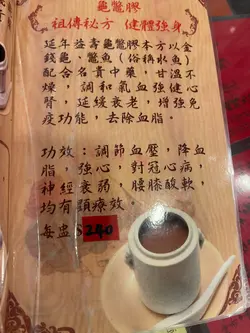 龜鱉膠
祖傳秘方 健體強身
延年益壽龜鱉膠本方以金
錢龜、鱉魚(俗稱水魚)
配合名貴中藥,甘溫不
燥,調和氣血強健心
腎,延緩衰老,增強免
疫功能,去除血脂。
功效:調節血壓,降血
脂,強心,對冠心病,
神經衰弱,腰膝酸軟,
均有顯療效。
每盅$240